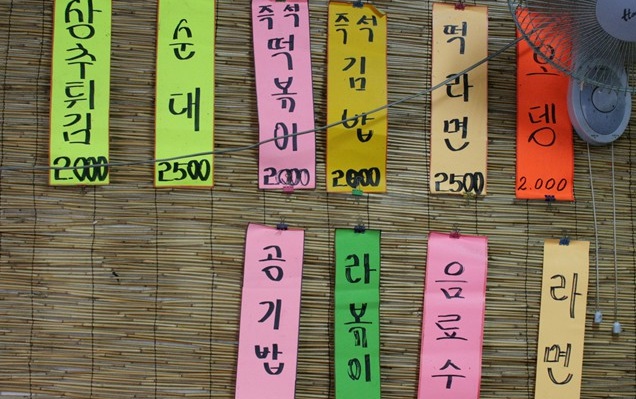 상추튀김
2.000
순대
2500
즉석
떡볶이
2.000
즉석
김밥
2000
떡라면
2500
오뎅
2.000
공기밥
라볶이
음료수
라면